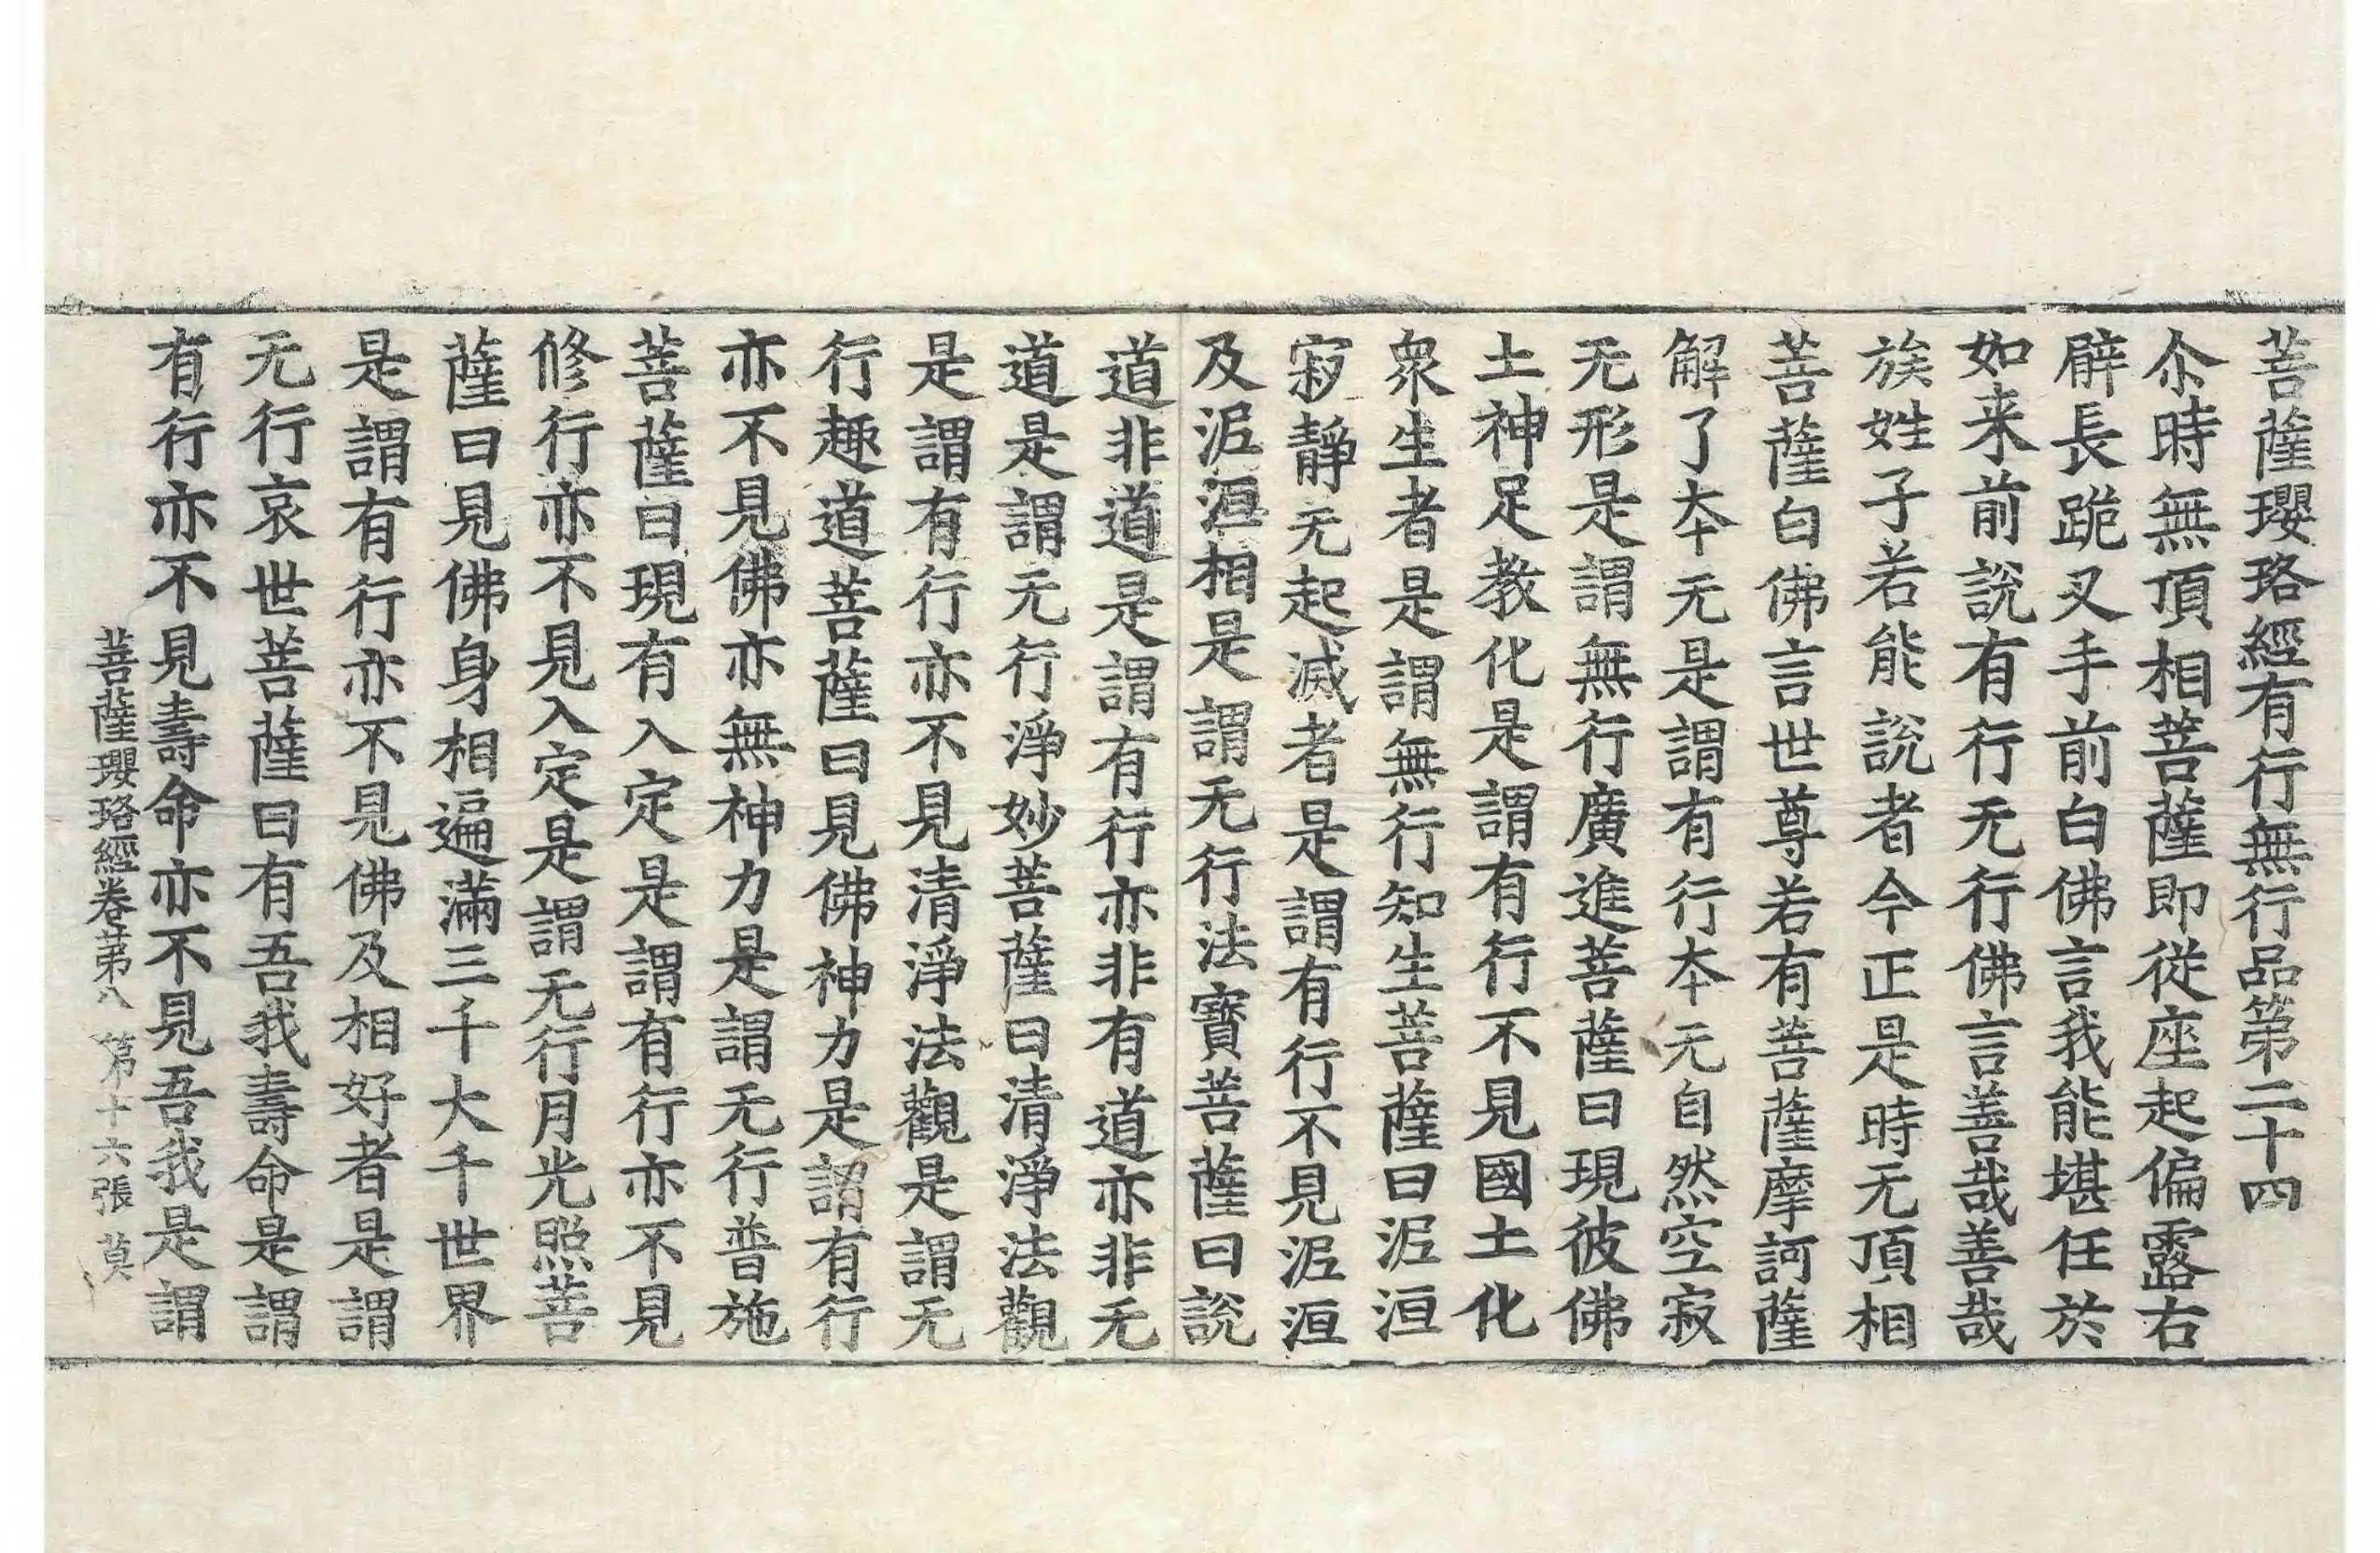 菩薩瓔珞經有行無行品第二十四
尒時無頂相菩薩即從座起偏露右
臂長跪叉手前白佛言我能堪任於
如来前說有行无行佛言善哉善哉
族姓子若能說者今正是時无頂相
菩薩白佛言世尊若有菩薩摩訶薩
解了夲无是謂有行夲无自然空寂
无形是謂無行廣進菩薩曰現彼佛
土神足教化是謂有行不見國土化
衆生者是謂無行知生菩薩曰泥洹
寂靜无起滅者是謂有行不見泥洹
及泥洹相是謂无行法寶菩薩曰說
道非道是謂有行亦非有道亦非无
道是謂无行淨妙菩薩曰清淨法觀
是謂有行亦不見清淨法觀是謂无
行趣道菩薩曰見佛神力是謂有行
亦不見佛亦無神力是謂无行普施
菩薩曰現有入定是謂有行亦不見
修行亦不見入定是謂无行月光照菩
薩曰見佛身相遍滿三千大千世界
是謂有行亦不見佛及相好者是謂
无行哀世菩薩曰有吾我壽命是謂
有行亦不見壽命亦不見吾我是謂
菩薩瓔珞經卷苐八 第十六張 莫